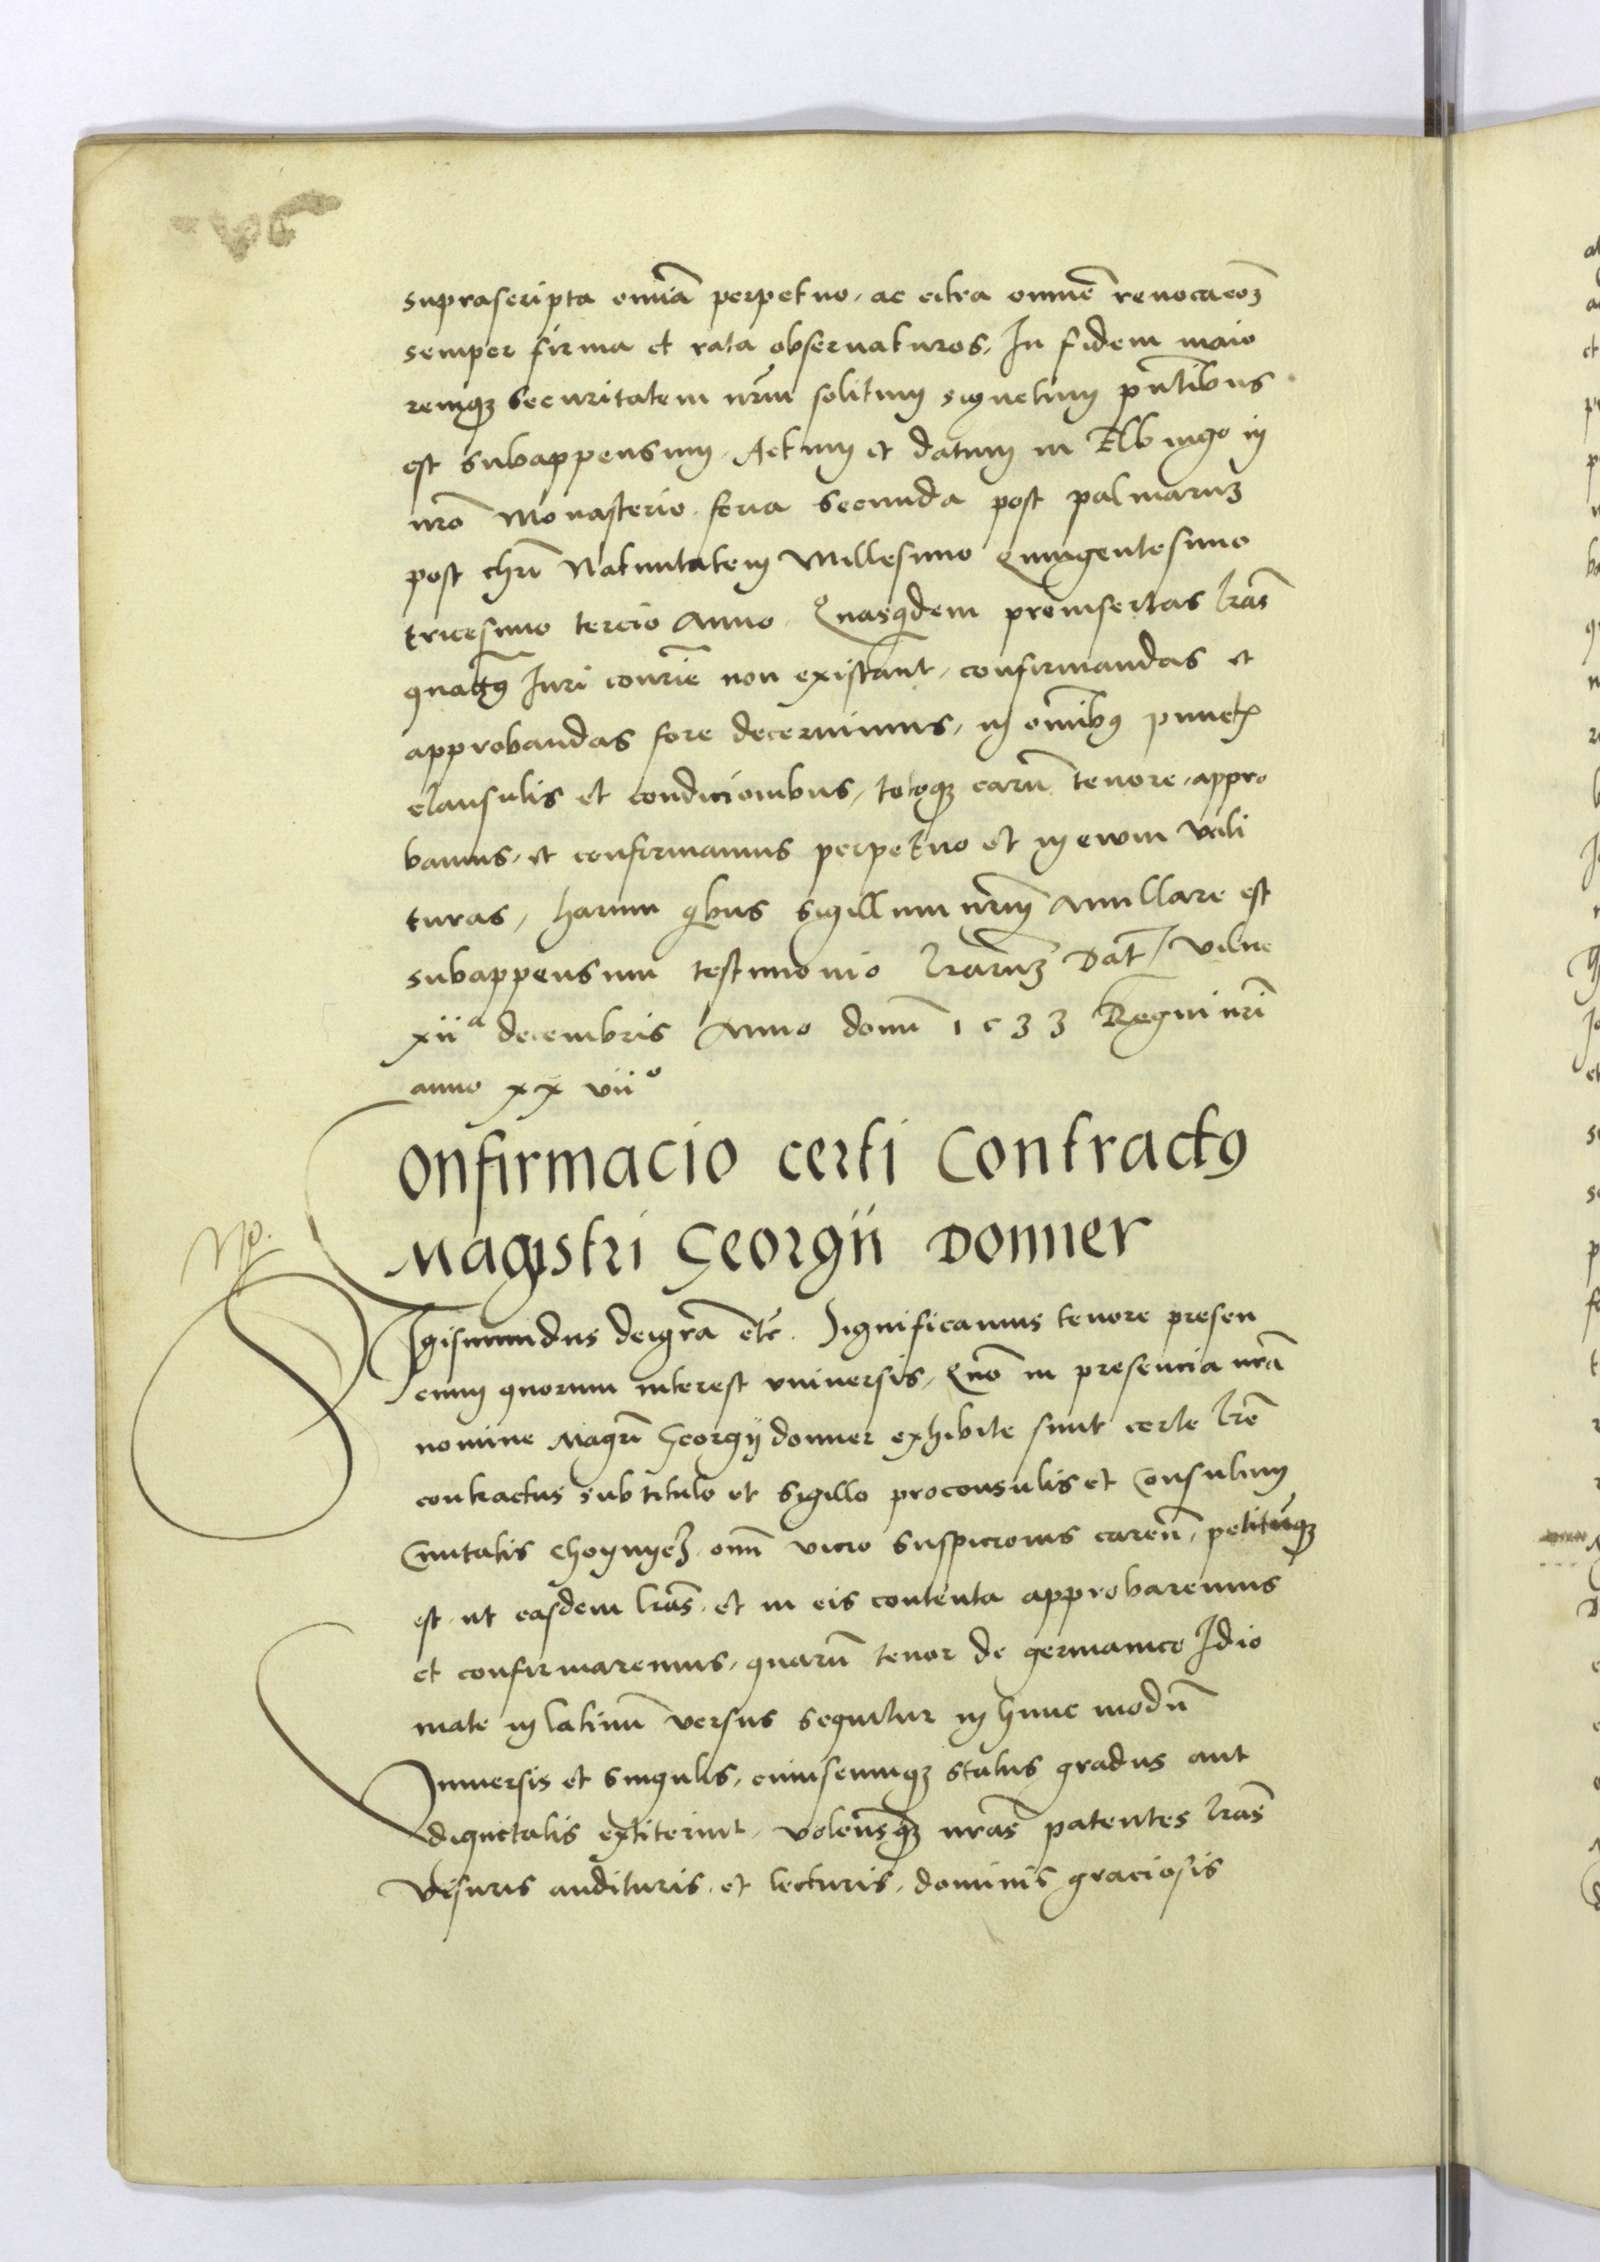 suprascripta omnia perpetuo, ac citra omnē revocacoēz
semper firma et rata observaturos, In fidem maio
remqz securitatem nrm̄ solitum signetum pn̄tibus
est subappensum. Actum et datum in Elbingo in
nrō Monasterio feria secunda post palmarum
post chrī Natiuitatem Millesimo Quingentesimo
tricesimo tercio Anno. Quasqdem preinsertas lrās
quatq9 Juri conriē non existant, confirmandas et
approbandas fore decernimus, in om̄ibq punctis
clausulis et condicionibus, totoqz earū tenore, appro
bamus, et confirmamus perpetuo et in ewm vali
turas, harum qbus sigillum nrm̄ Anullare est
subappensum testimonio lrarum Dat Vilne
xii a decembris Anno domī 1533 Regni nrī
anno xx vii o
Onfirmacio certi Contractq
Magistri Georgii Donner
Igismundus dei grā etc̄. Significamus tenore presen
cium quorum interest vniversis, Quō in presencia nrā
nomine Magrī Georgij donner exhibite sunt certe lrē
contractus sub titulo et sigillo proconsulis et Consulum
Ciuitatis Choynycz omī vicio suspicionis caren̄, petitūqz
est ut easdem lrās, et in eis contenta approbaremus
et confirmaremus, quarū tenor de germanico Idio
mate in latinū versus sequitur in hunc modū
Vniuersis et singulis, cuiuscumqz status gradus aut
dignitatis extiterint, volen̄sqz nrās patentes lrās
visuris audituris et lecturis, dominis graciosis